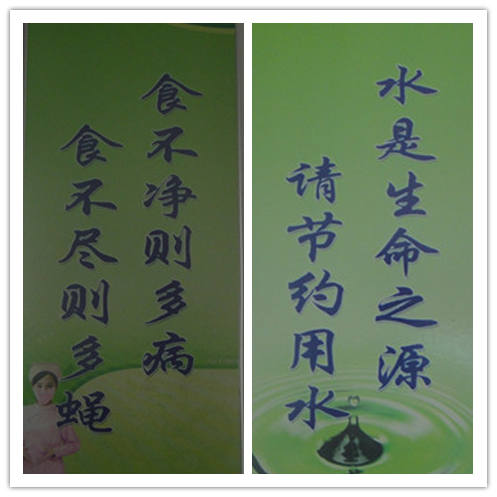 食不净则多病
食不尽则多蝇
水是生命之源
请节约用水